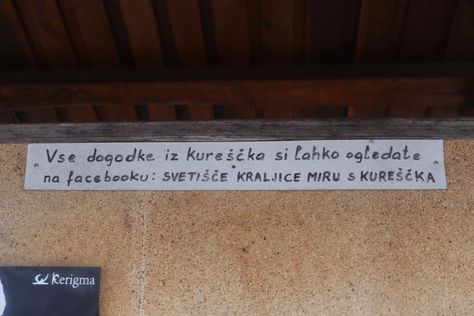 Vse dogodke iz kureščka si lahko ogledate
na facebooku: SVETIŠČE KRALJICE MIRU S KUREŠČKA
Kerigma